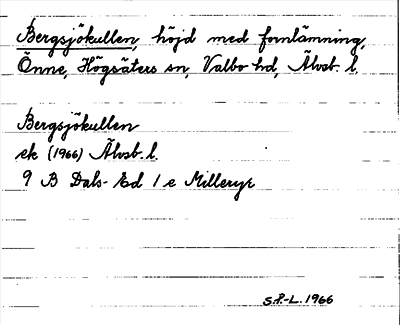 Bergsjökullen, höjd med fornlämning,
Önne, Högsäters sn, Valbo hd, Älvsb. l.
Bergsjökullen
ek (1966) Älvsb. l.
9 B Dals-Ed 1 e Milleryr
S.P.-L. 1966